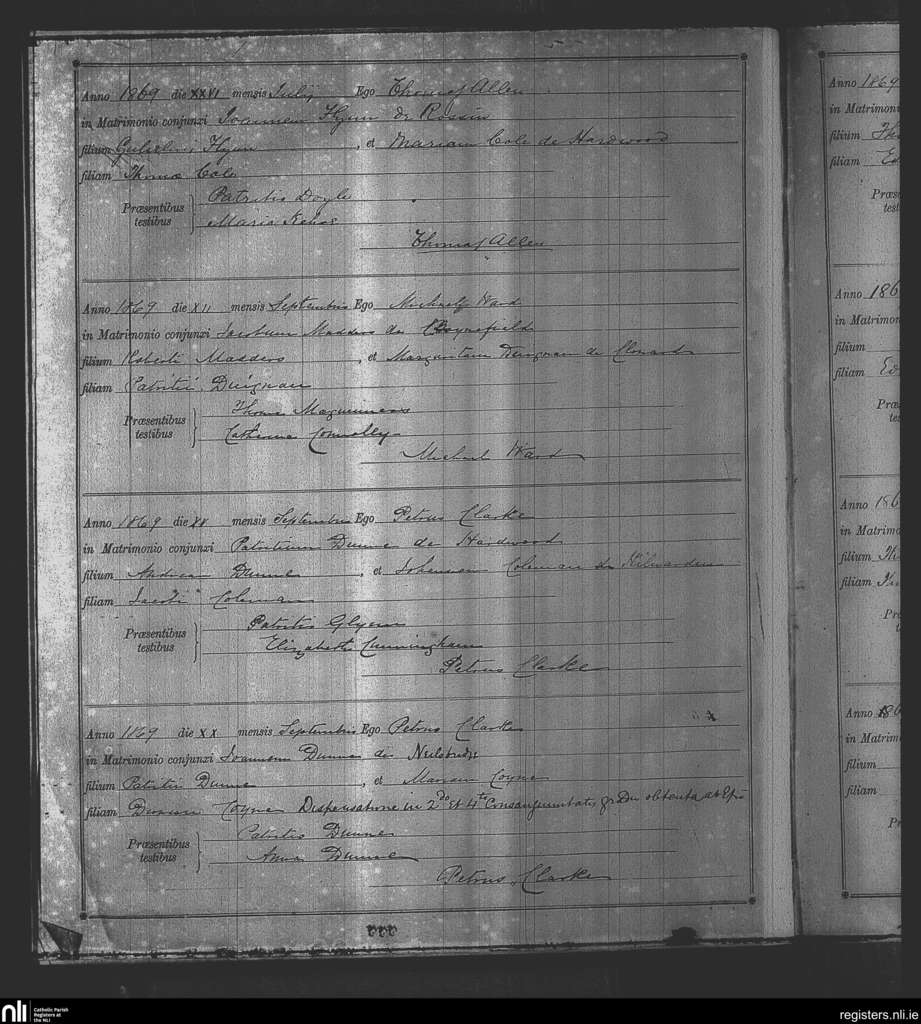 Anno 1869 die XXVI mensis Julij Ego Thomas Allen
in Matrimonio conjunxi Joannem Flynn de Rossin
filium Flynn, et Mariam Cole de Hardwood
filiam Thomæ Cole
Præsentibus testibus
Patritio Doyle
Maria Kehoe
Thomas Allen
Anno 1869 die XII mensis Septembris Ego Michael Ward
in Matrimonio conjunxi Jacobum Madders de
filium Roberti Madders, et Margaritam Duignan de Clonard
filiam Patritii Duignan
Præsentibus testibus
Thoma
Catherina Connolly
Michael Ward
Anno 1869 die XX mensis Septembris Ego Petrus Clarke
in Matrimonio conjunxi Patritium Dunne de Hardwood
filium Andreæ Dunne, et Johannam Coleman de Kilwarden
filiam Jacobi Coleman
Præsentibus testibus
Patritio Glynn
Elizabetha Cunningham
Petrus Clarke
Anno 1869 die XX mensis Septembris Ego Petrus Clarke
in Matrimonio conjunxi Joannem Dunne de
filium Patritii Dunne, et Mariam Coyne
filiam Coyne Dispensatione in 2do et 4to Consanguinitatis obtenta ab
Præsentibus testibus
Patritio Dunne
Anna Dunne
Petrus Clarke
Anno 1869
in Matrimon
filium
filiam
Anno 186
in Matrimon
filium
filiam
Anno 186
in Matrimo
filium
filiam
Anno 186
in Matrim
filium
filiam
nli
Catholic Parish
Registers at
the NLI
registers.nli.ie